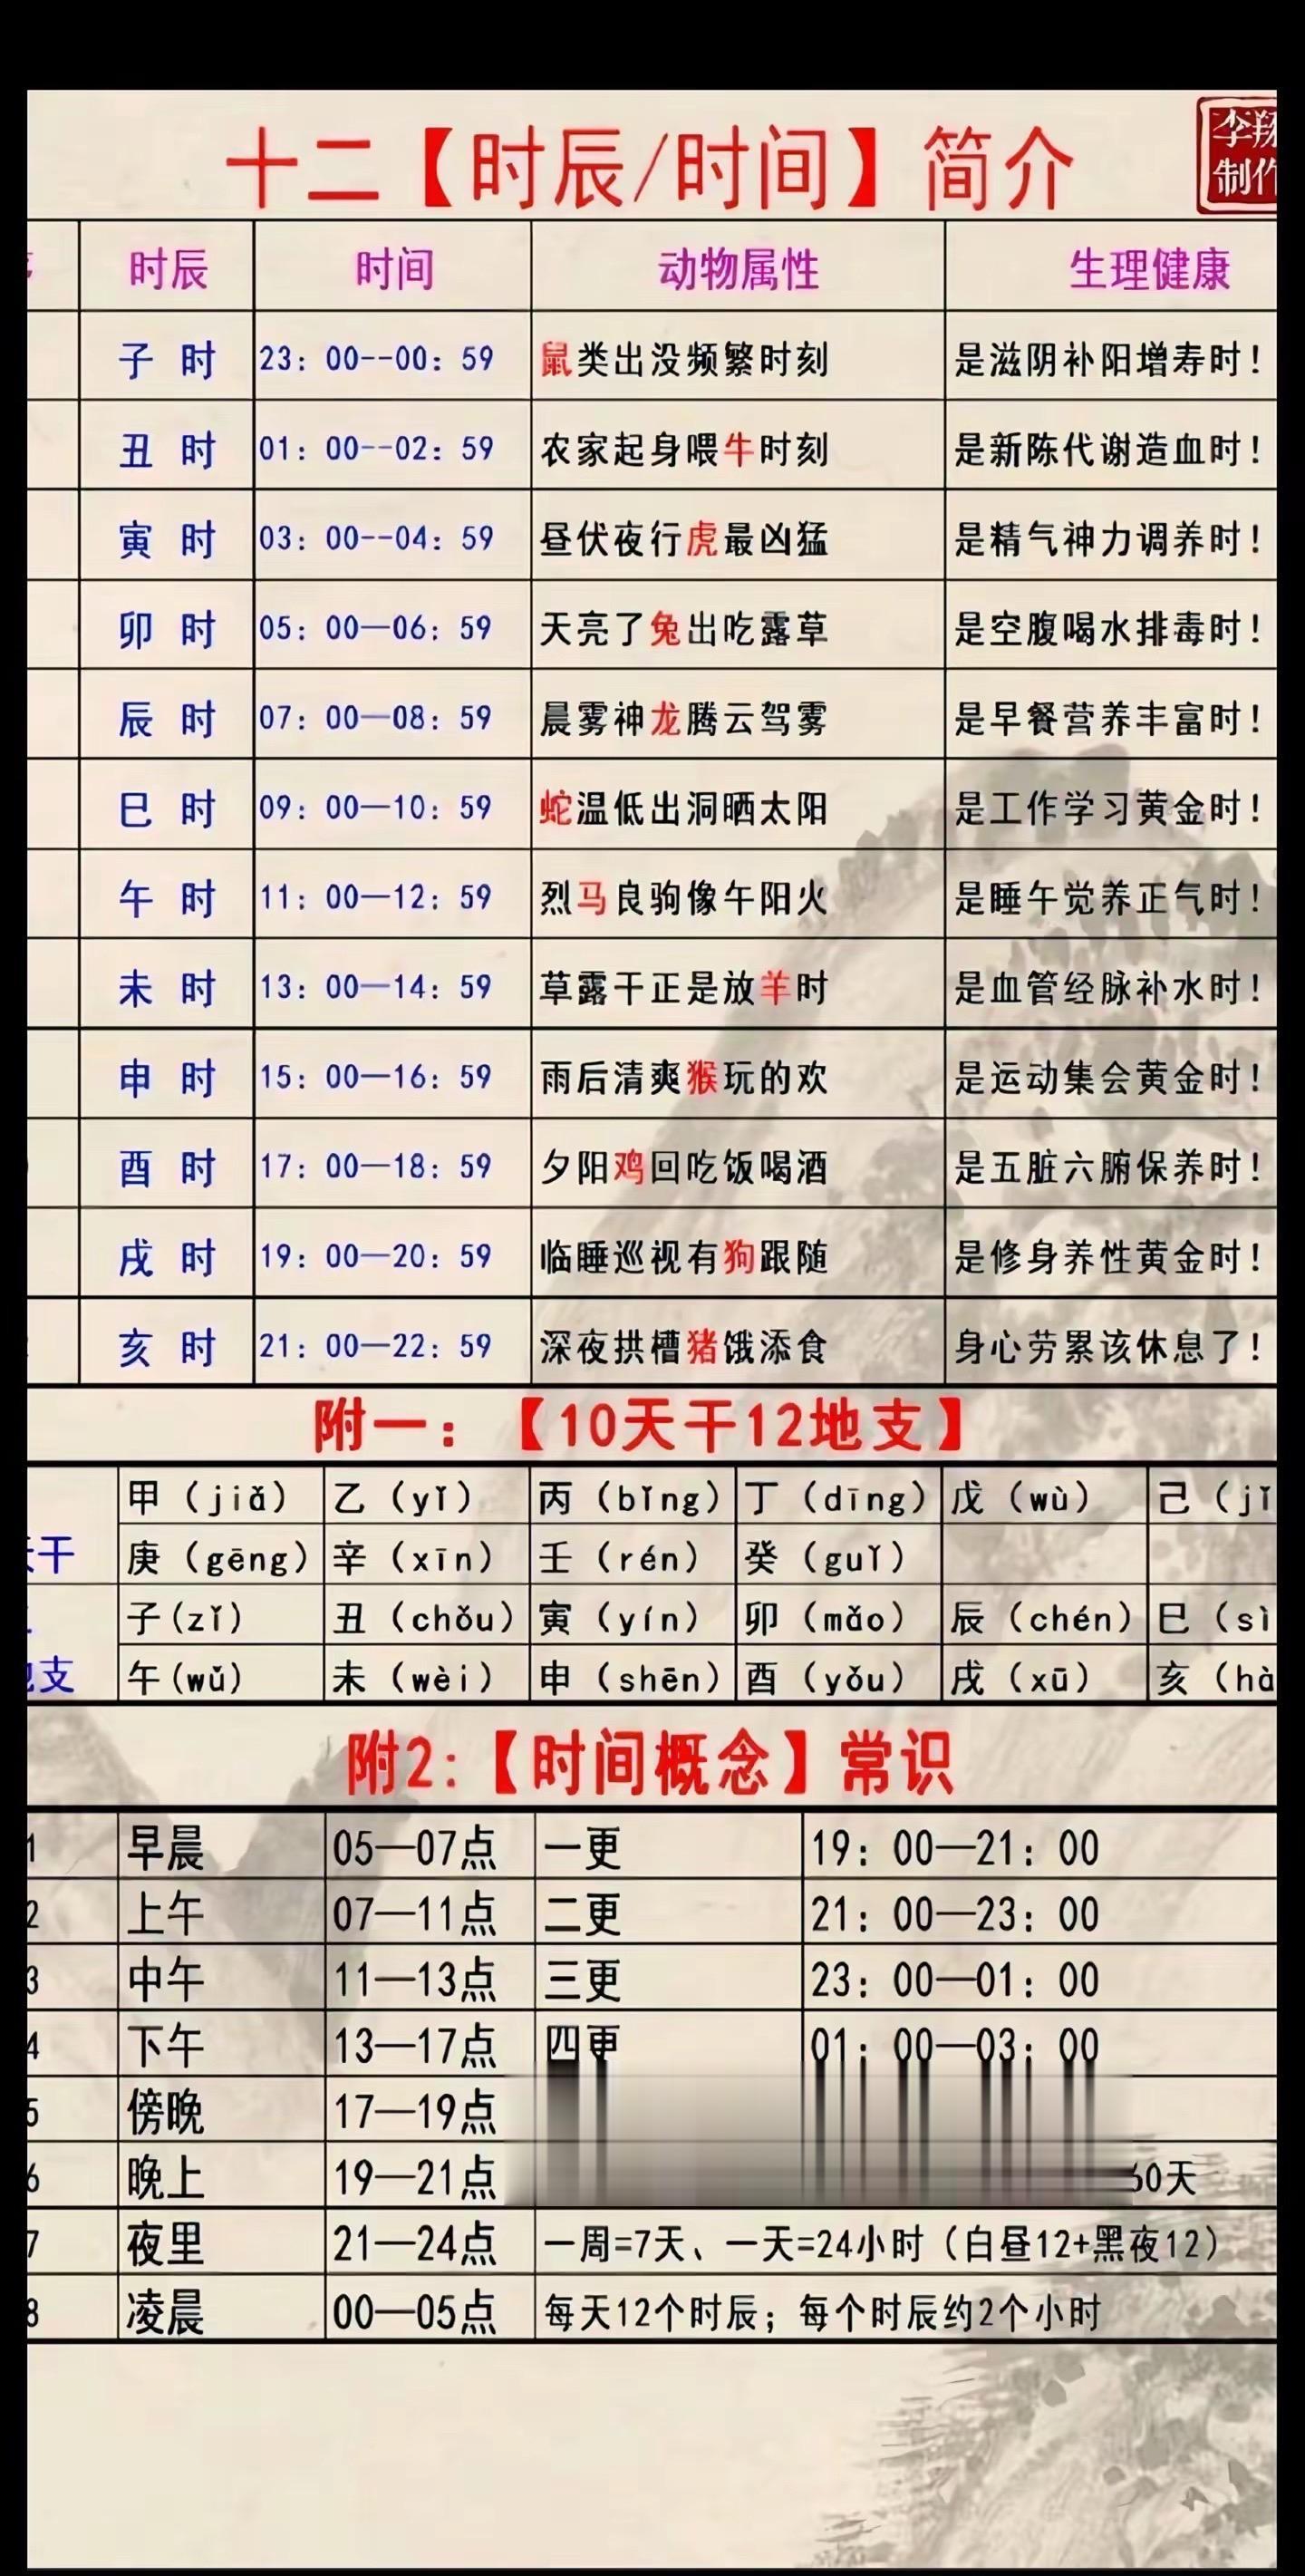 十二【时辰/时间】简介
制作
时辰 时间 动物属性 生理健康
子 时 23：00--00：59 鼠类出没频繁时刻 是滋阴补阳增寿时！
丑 时 01：00--02：59 农家起身喂牛时刻 是新陈代谢造血时！
寅 时 03：00--04：59 昼伏夜行虎最凶猛 是精气神力调养时！
卯 时 05：00—06：59 天亮了兔出吃露草 是空腹喝水排毒时！
辰 时 07：00—08：59 晨雾神龙腾云驾雾 是早餐营养丰富时！
巳 时 09：00—10：59 蛇温低出洞晒太阳 是工作学习黄金时！
午 时 11：00—12：59 烈马良驹像午阳火 是睡午觉养正气时！
未 时 13：00—14：59 草露干正是放羊时 是血管经脉补水时！
申 时 15：00—16：59 雨后清爽猴玩的欢 是运动集会黄金时！
酉 时 17：00—18：59 夕阳鸡回吃饭喝酒 是五脏六腑保养时！
戌 时 19：00—20：59 临睡巡视有狗跟随 是修身养性黄金时！
亥 时 21：00—22：59 深夜拱槽猪饿添食 身心劳累该休息了！
附一：【10天干12地支】
甲（jiǎ） 乙（yǐ） 丙（bǐng） 丁（dīng） 戊（wù） 己（jǐ
干 庚（gēng） 辛（xīn） 壬（rén） 癸（guǐ）
子(zǐ) 丑（chǒu） 寅（yín） 卯（mǎo） 辰（chén） 巳（sì
支 午(wǔ) 未（wèi） 申（shēn） 酉（yǒu） 戌（xū） 亥（hà
附2:【时间概念】常识
1 早晨 05—07点 一更 19：00—21：00
2 上午 07—11点 二更 21：00—23：00
3 中午 11—13点 三更 23：00—01：00
4 下午 13—17点 四更 01：00—03：00
5 傍晚 17—19点
6 晚上 19—21点 60天
7 夜里 21—24点 一周=7天、一天=24小时（白昼12+黑夜12）
8 凌晨 00—05点 每天12个时辰；每个时辰约2个小时